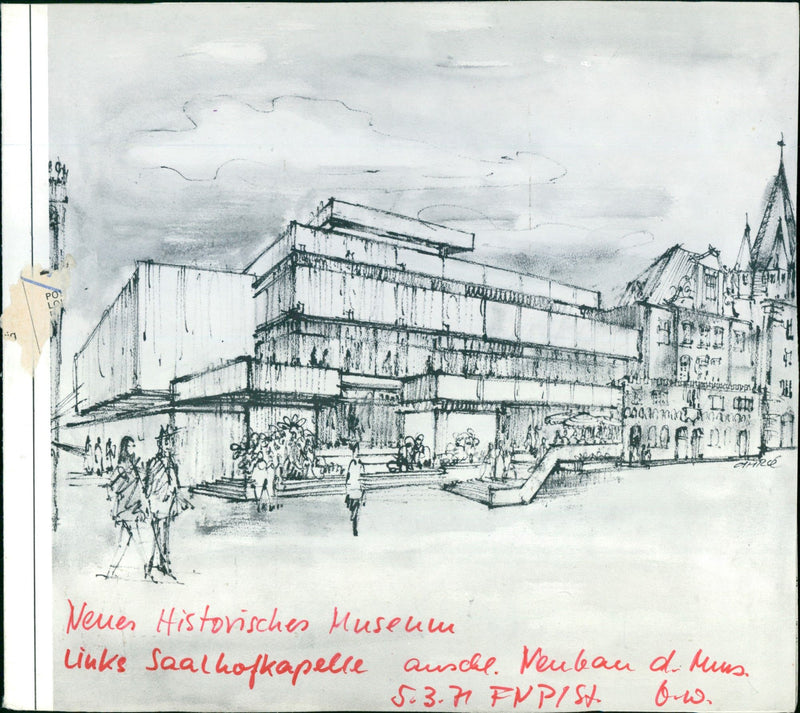 PO
LO
in
Neues Historisches Museum
Links Saalhofkapelle anschl. Neubau d. Mus.
5.3.71 FNP/St. b.w.